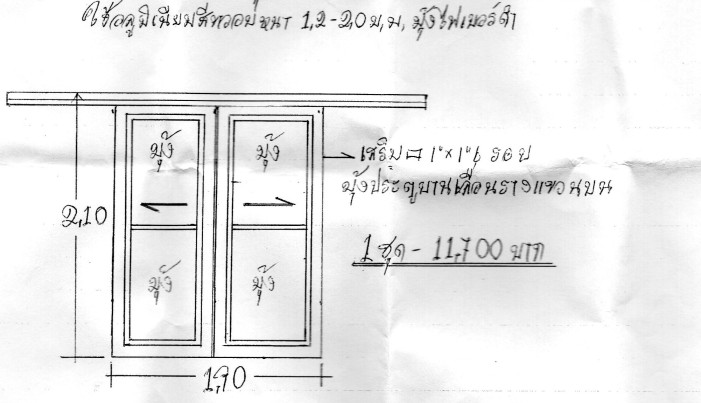 ใช้อลูมิเนียมสีทรอปหนา 1,2-2,0 ม,ม, มุ้งไฟเบอร์ดำ
มุ้ง มุ้ง
เสริม 1"x1" รอบ
มุ้งประตูบานเลื่อนรางแขวนบน
2,10
1 ชุด - 11,700 บาท
มุ้ง มุ้ง
1,90